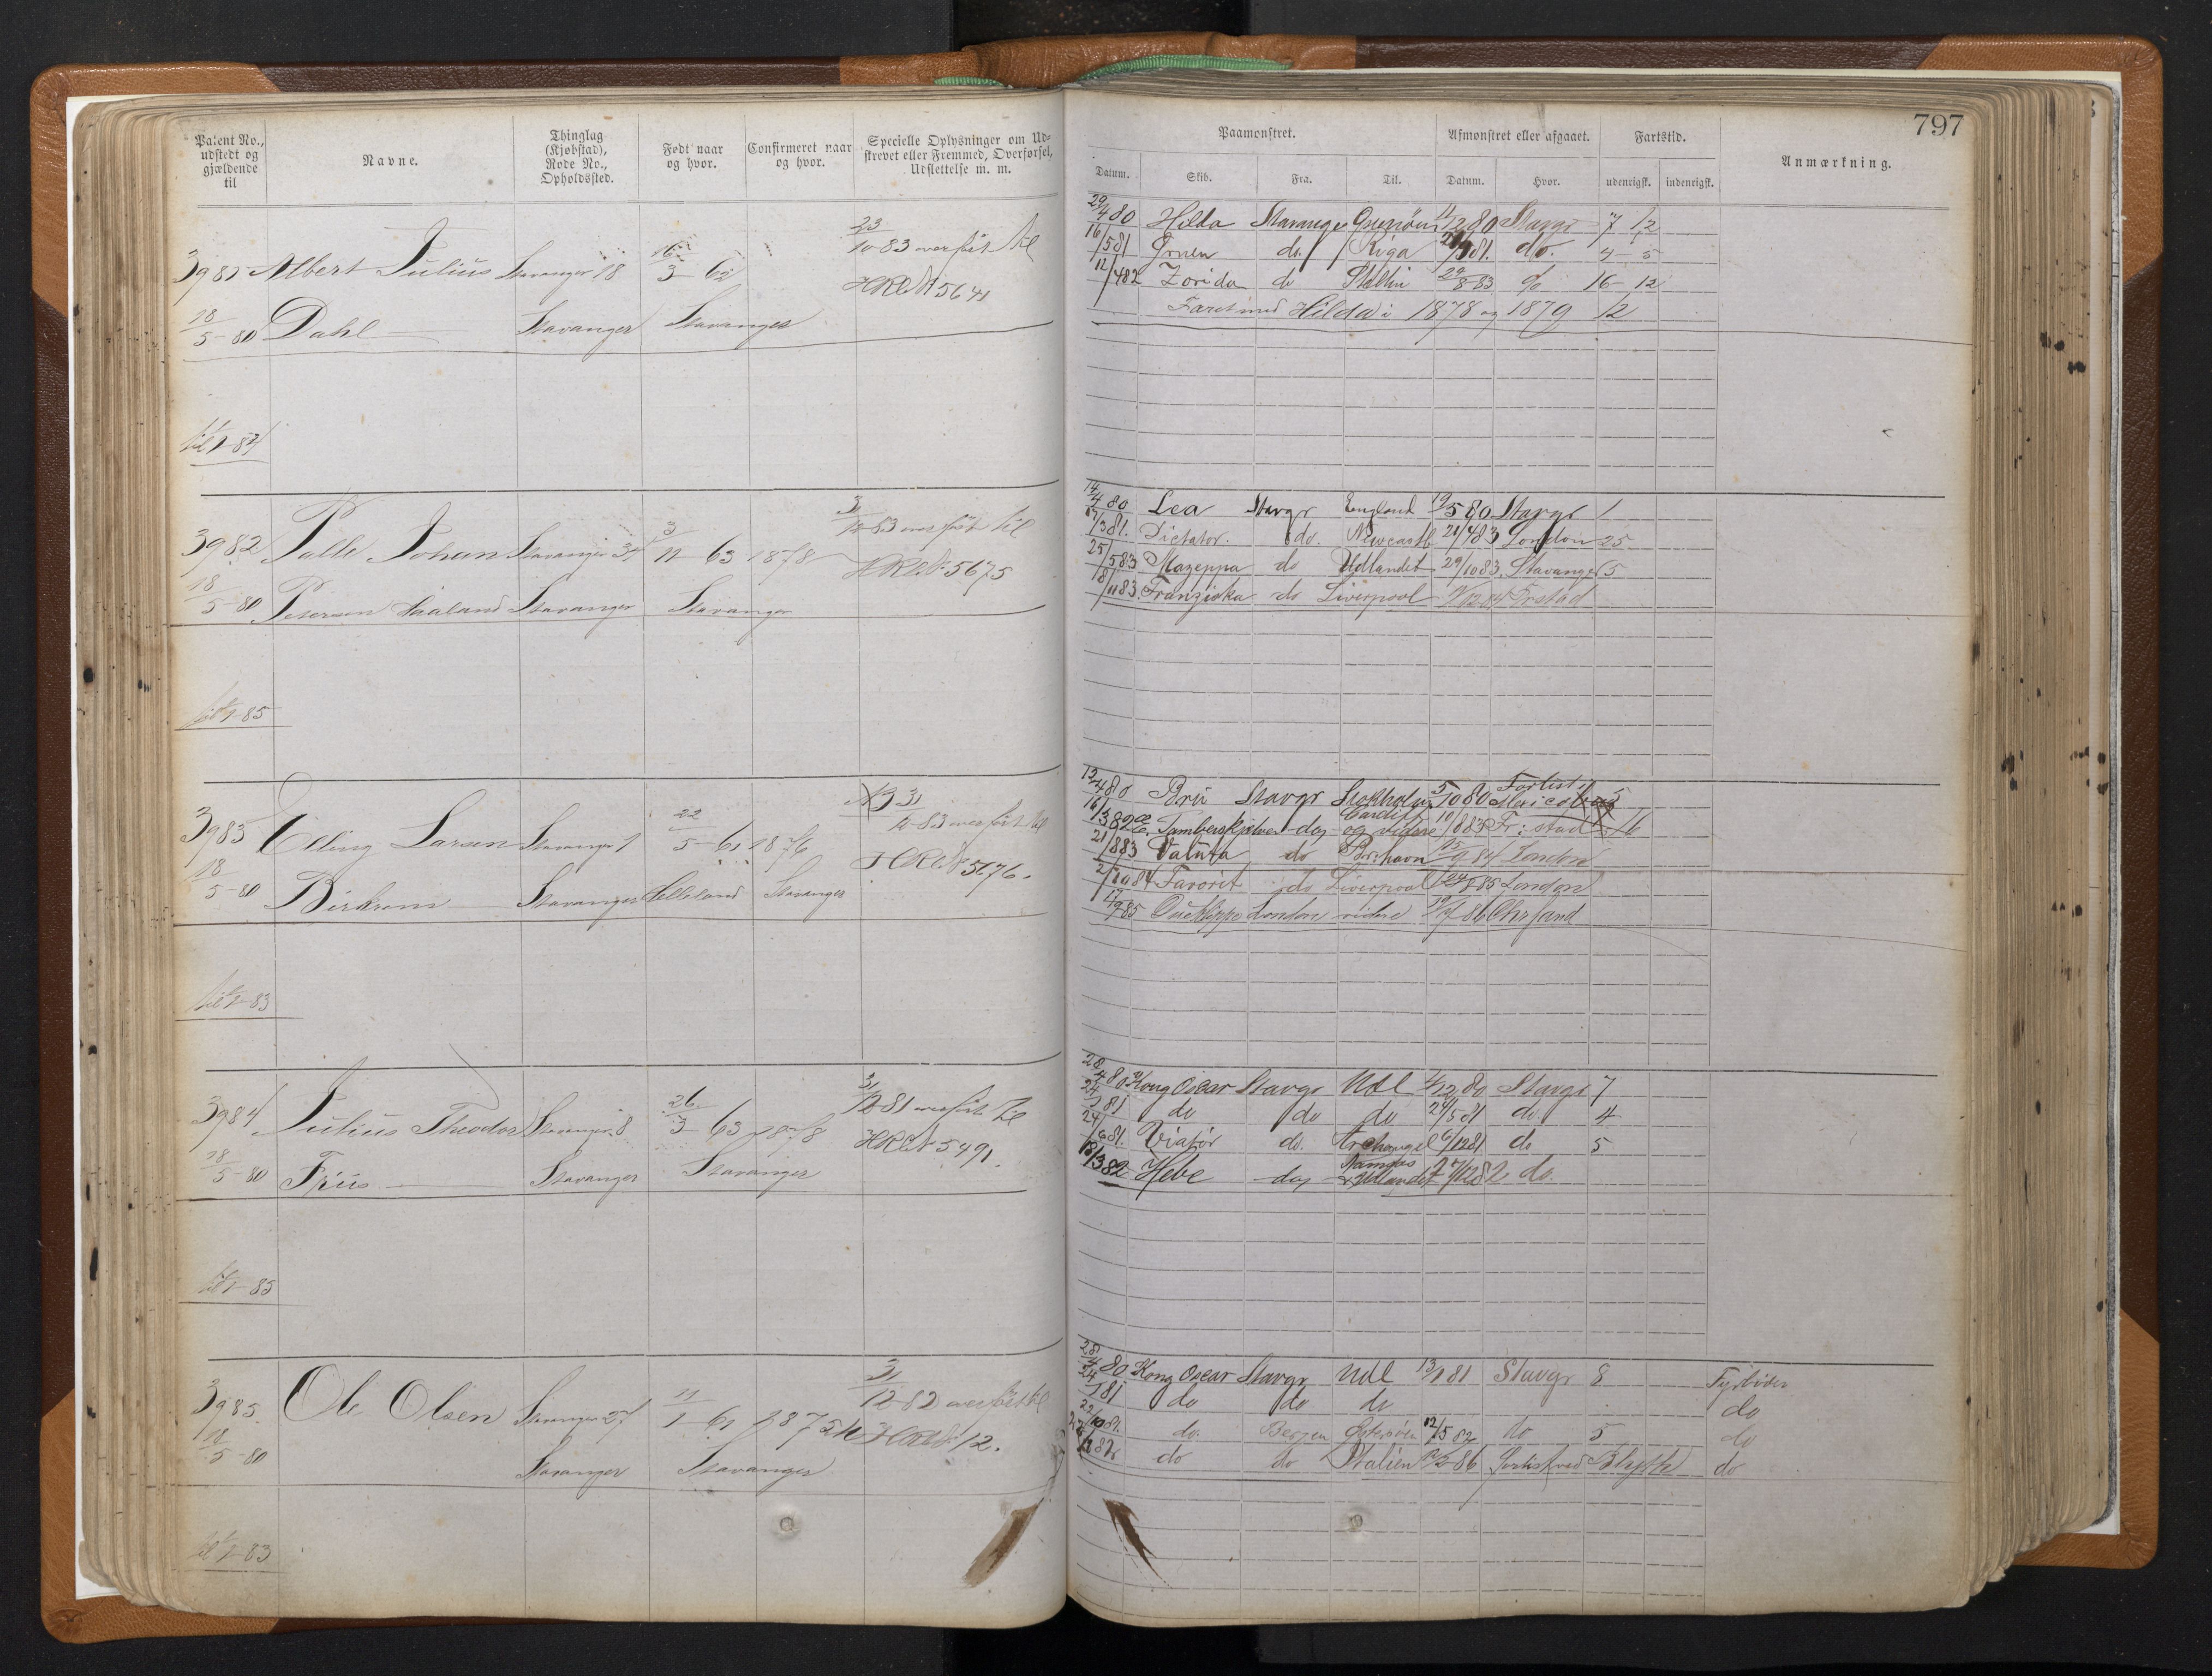 797
Patent No., udstedt og gjældende til
Navne.
Thinglag (Kjøbstad), Rode No., Opholdssted.
Født naar og hvor.
Confirmeret naar og hvor.
Specielle Oplysninger om Udskrevet eller Fremmed, Overførsel, Udslettelse m. m.
Paamonstret.
Afmonstret eller afgaaet.
Fartstid.
Anmærkning.
Datum. Skib. Fra. Til. Datum. Hvor. udenrigsk. indenrigsk.
3981 Albert Julius Stavanger 18 16/3 62 23/10-83 overført til
HRL No 5641
18/5-80 Dahl Stavanger Stavanger
til 1/1-84
29/4 80 Hilda Stavanger 11/12 80 Stavgr 7 12
16/5 81 do. Riga 81. do. 4 - 5
12/4 82 Zorida do Stettin 29/8-83 16 - 12
Faret med Hilda i 1878 og 1879 12
3982 Palle Johan Stavanger 31 3/11 63 1878 31/12-83 overført til
HRL No 5675
18/5-80 Petersen Haaland Stavanger Stavanger
til 1/1-85
14/4 80 Lea Stavgr England 19/5 80 Stavgr 1
17/3 81. Dictator. do. Newcastle 21/4 83 London 25
25/5 83 Mazeppa do Udlandet 29/10 83. Stavanger 5
18/11 83. Franziska do Liverpool Frstad
3983 Elling Larsen Stavanger 1 22/5-61 1876 31/12-83 overført til
HRL No 5676.
18/5-80 Birkrem Stavanger Helleland Stavanger
til 1/1-83
12/4 80 Bru Stavgr Stokholm 5/10 80 Forlist i Mexico
16/3 82 Tamberskjelver do Cardiff og videre 10/8 83 Fr:stad 16
21/8 83 Valuta do 84 London
2/10 84 Favorit do Liverpool 24/8 85 London
85 London videre 86 Chrsand
3984 Julius Theodor Stavanger 8 26/3-63 1878 31/12 81 overført til
HRL No 5491
18/5-80 Friis Stavanger Stavanger
til 1/1-85
28/4 80 Kong Oscar Stavgr Udl 4/12 80 Stavgr 7
24/1 81 do do do 24/5 81 do. 4
24/6 81. Viator do. Archangel 6/12 81 do 5
18/3 82 Hebe do Udlandet 27/12 82 do.
3985. Ole Olsen Stavanger 27 11/1-61 1875 31/12-82 overført til
HRL No 12.
18/5-80 Stavanger Stavanger
til 1/1-83
28/4 80 Kong Oscar Stavgr Udl 13/1 81 Stavgr 8 Fyrbøder
24/1 81 do do do do
22/10 81. do. Bergen Østersøen 12/5 82 do 5 do
82 do do Italien 86 Forlist ved Blyth do